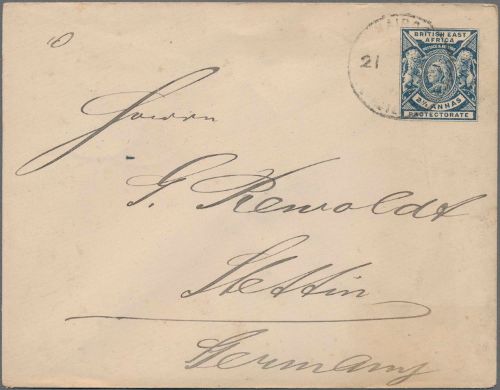 BRITISH EAST
AFRICA
2½ ANNAS
PROTECTORATE
21
Herrn
G. Rewoldt
Stettin
Germany